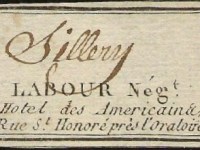 Sillery
LABOUR Négt.
Hotel des Americains
Rue St. Honoré près l'Oratoire